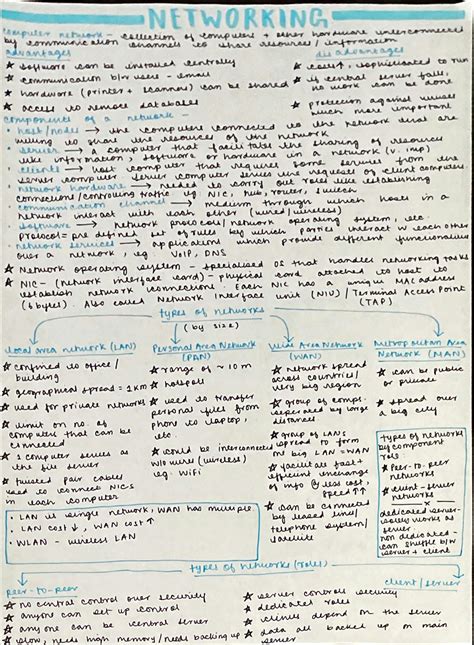 NETWORKING
computer network - collection of computers + other hardware interconnected
by communication channels to share resources / information
advantages
disadvantages
★ software can be installed centrally
★ cost↑, sophisticated to run
★ communication b/w users - email
★ if central server fails,
no work can be done
★ hardware (printer + scanner) can be shared
★ protection against viruses
much more important
★ access to remote databases
components of a network -
• host/nodes → the computers connected to the network that are
willing to share the resources of the network
• server → a computer that facilitates the sharing of resources
like information, software or hardware in a network (v. imp)
• clients → host computer that requires some services from the
server computer. server computer serves the requests of client computers
• network hardware → needed to carry out roles like establishing
connections/controlling traffic eg NIC, hub, router, switch
• communication channel → medium through which hosts in a
network interact with each other (wired/wireless)
• software → network protocols / network operating system, etc.
protocol = pre defined set of rules by which parties interact w each other
• network services → applications which provide different functionalities
over a network, eg. VoIP, DNS
★ Network operating system - specialised OS that handles networking tasks
★ NIC - (network interface card) - physical card attached to host to
establish network connections. Each NIC has a unique MAC address
(6 bytes). Also called Network Interface Unit (NIU) / Terminal Access Point
(TAP)
types of networks
(by size)
Local area network (LAN)
★ confined to office /
building
★ geographical spread = 1 km
★ used for private networks
★ limit on no. of
computers that can be
connected
★ 1 computer serves as
the file server
★ twisted pair cables
used to connect NICs
in each computer
Personal Area Network
(PAN)
★ range of ~ 10 m
★ hotspot
★ used to transfer
personal files from
phone to laptop,
etc.
★ could be interconnected
w/o wires (wireless)
eg. WiFi
Wide Area Network
(WAN)
★ network spread
across countries/
very big region
★ group of comps.
seperated by large
distances
★ group of LANs
spread to form
on big LAN = WAN
★ facilitate fast +
efficient exchange
of info @ less cost,
speed ↑↑
★ can be connected
by leased line/
telephone system/
satellite
Metropolitan Area
Network (MAN)
★ can be public
or private
★ spread over
a big city
types of networks
by component
roles
★ peer-to-peer
networks
★ client-server
networks
dedicated server-
solely works as
server
non dedicated -
can shuffle b/w
server + client
• LAN is single network, WAN has multiple
• LAN cost ↓, WAN cost ↑
• WLAN - wireless LAN
types of networks (roles)
peer-to-peer
★ no central control over security
★ anyone can set up control
★ anyone can be central server
★ slow, needs high memory / needs backing up
client/server
★ server controls security
★ dedicated roles
★ clients depend on the server
★ data all backed up on main
server